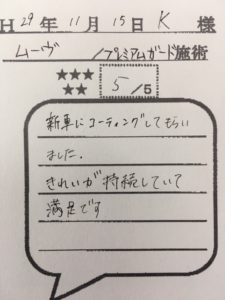 H29年11月15日 K 様
ムーヴ /プレミアムガード施術
★★★
★★
5/5
新車にコーティングしてもらい
ました.
きれいが持続していて
満足です